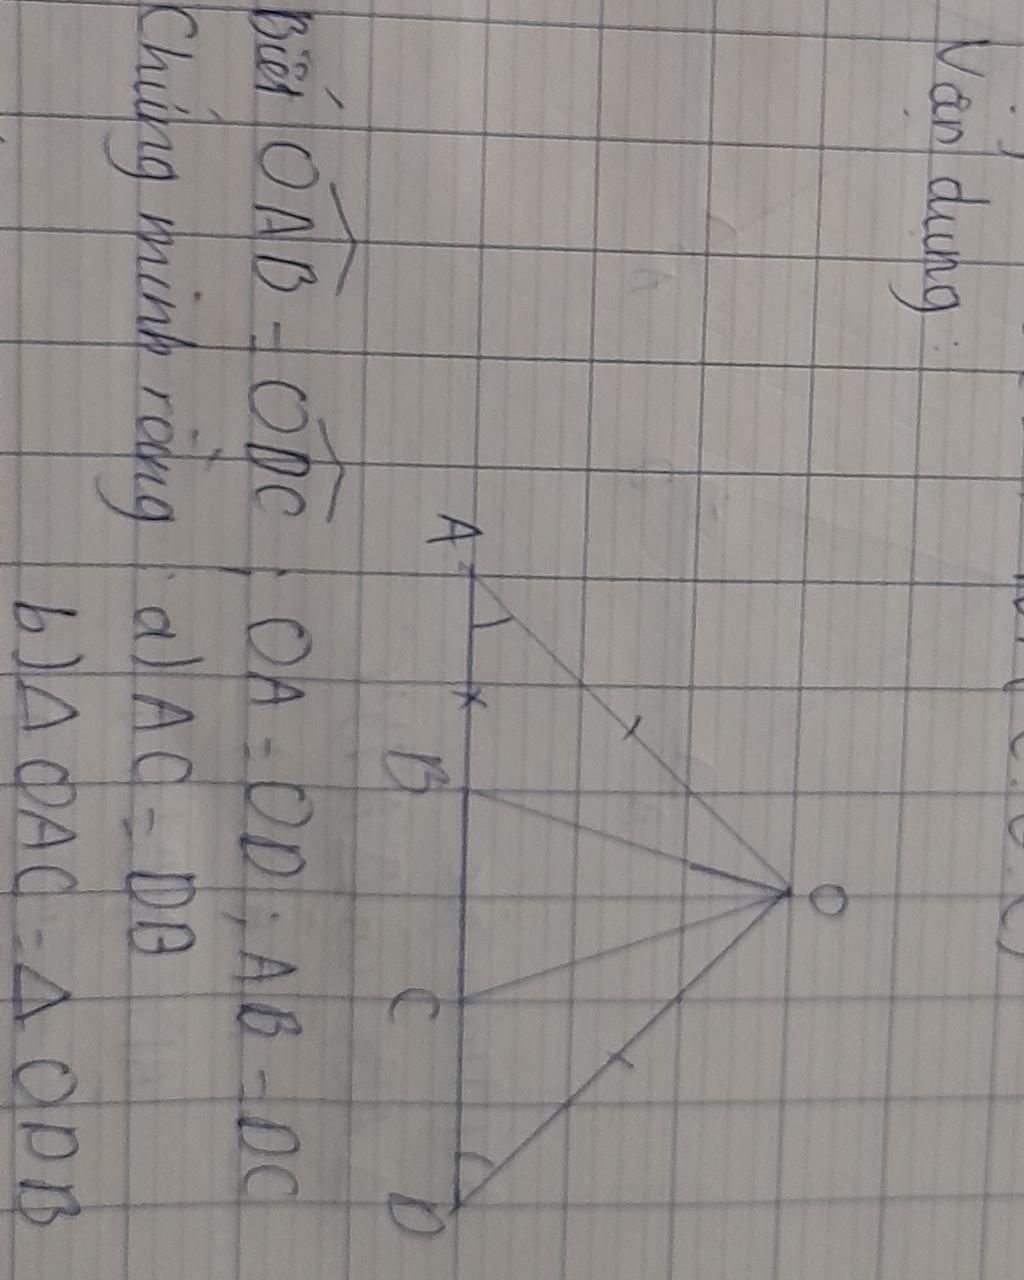 Vận dụng :
O
A
B
C
D
Biết OAB = ODC ; OA = OD ; AB = DC
Chứng minh rằng : a) AC = DB
b) Δ OAC = Δ ODB